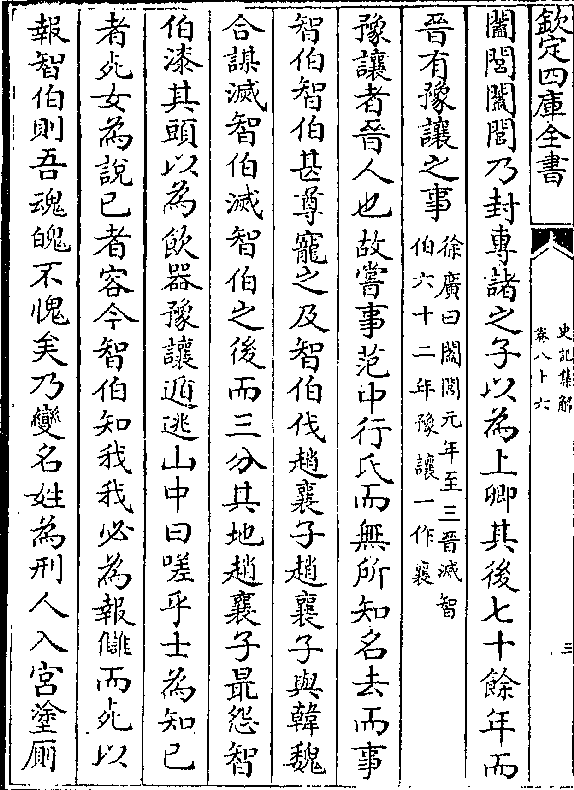 欽定四庫全書
史記集解
卷八十六
三
闔閭闔閭乃封專諸之子以為上卿其後七十餘年而
晉有豫讓之事
徐廣曰闔閭元年至三晉滅智
伯六十二年豫讓一作襄
豫讓者晉人也故嘗事范中行氏而無所知名去而事
智伯智伯甚尊寵之及智伯伐趙襄子趙襄子與韓魏
合謀滅智伯滅智伯之後而三分其地趙襄子最怨智
伯漆其頭以為飲器豫讓遁逃山中曰嗟乎士為知己
者死女為說己者容今智伯知我我必為報讎而死以
報智伯則吾魂魄不愧矣乃變名姓為刑人入宮塗厠